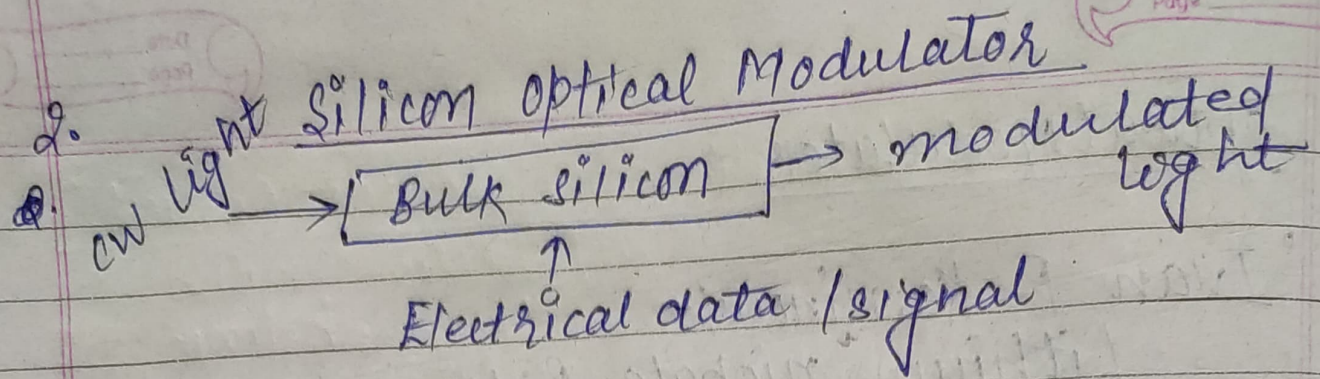 2. Silicon Optical Modulator
CW light → Bulk Silicon → modulated light
↑
Electrical data / signal